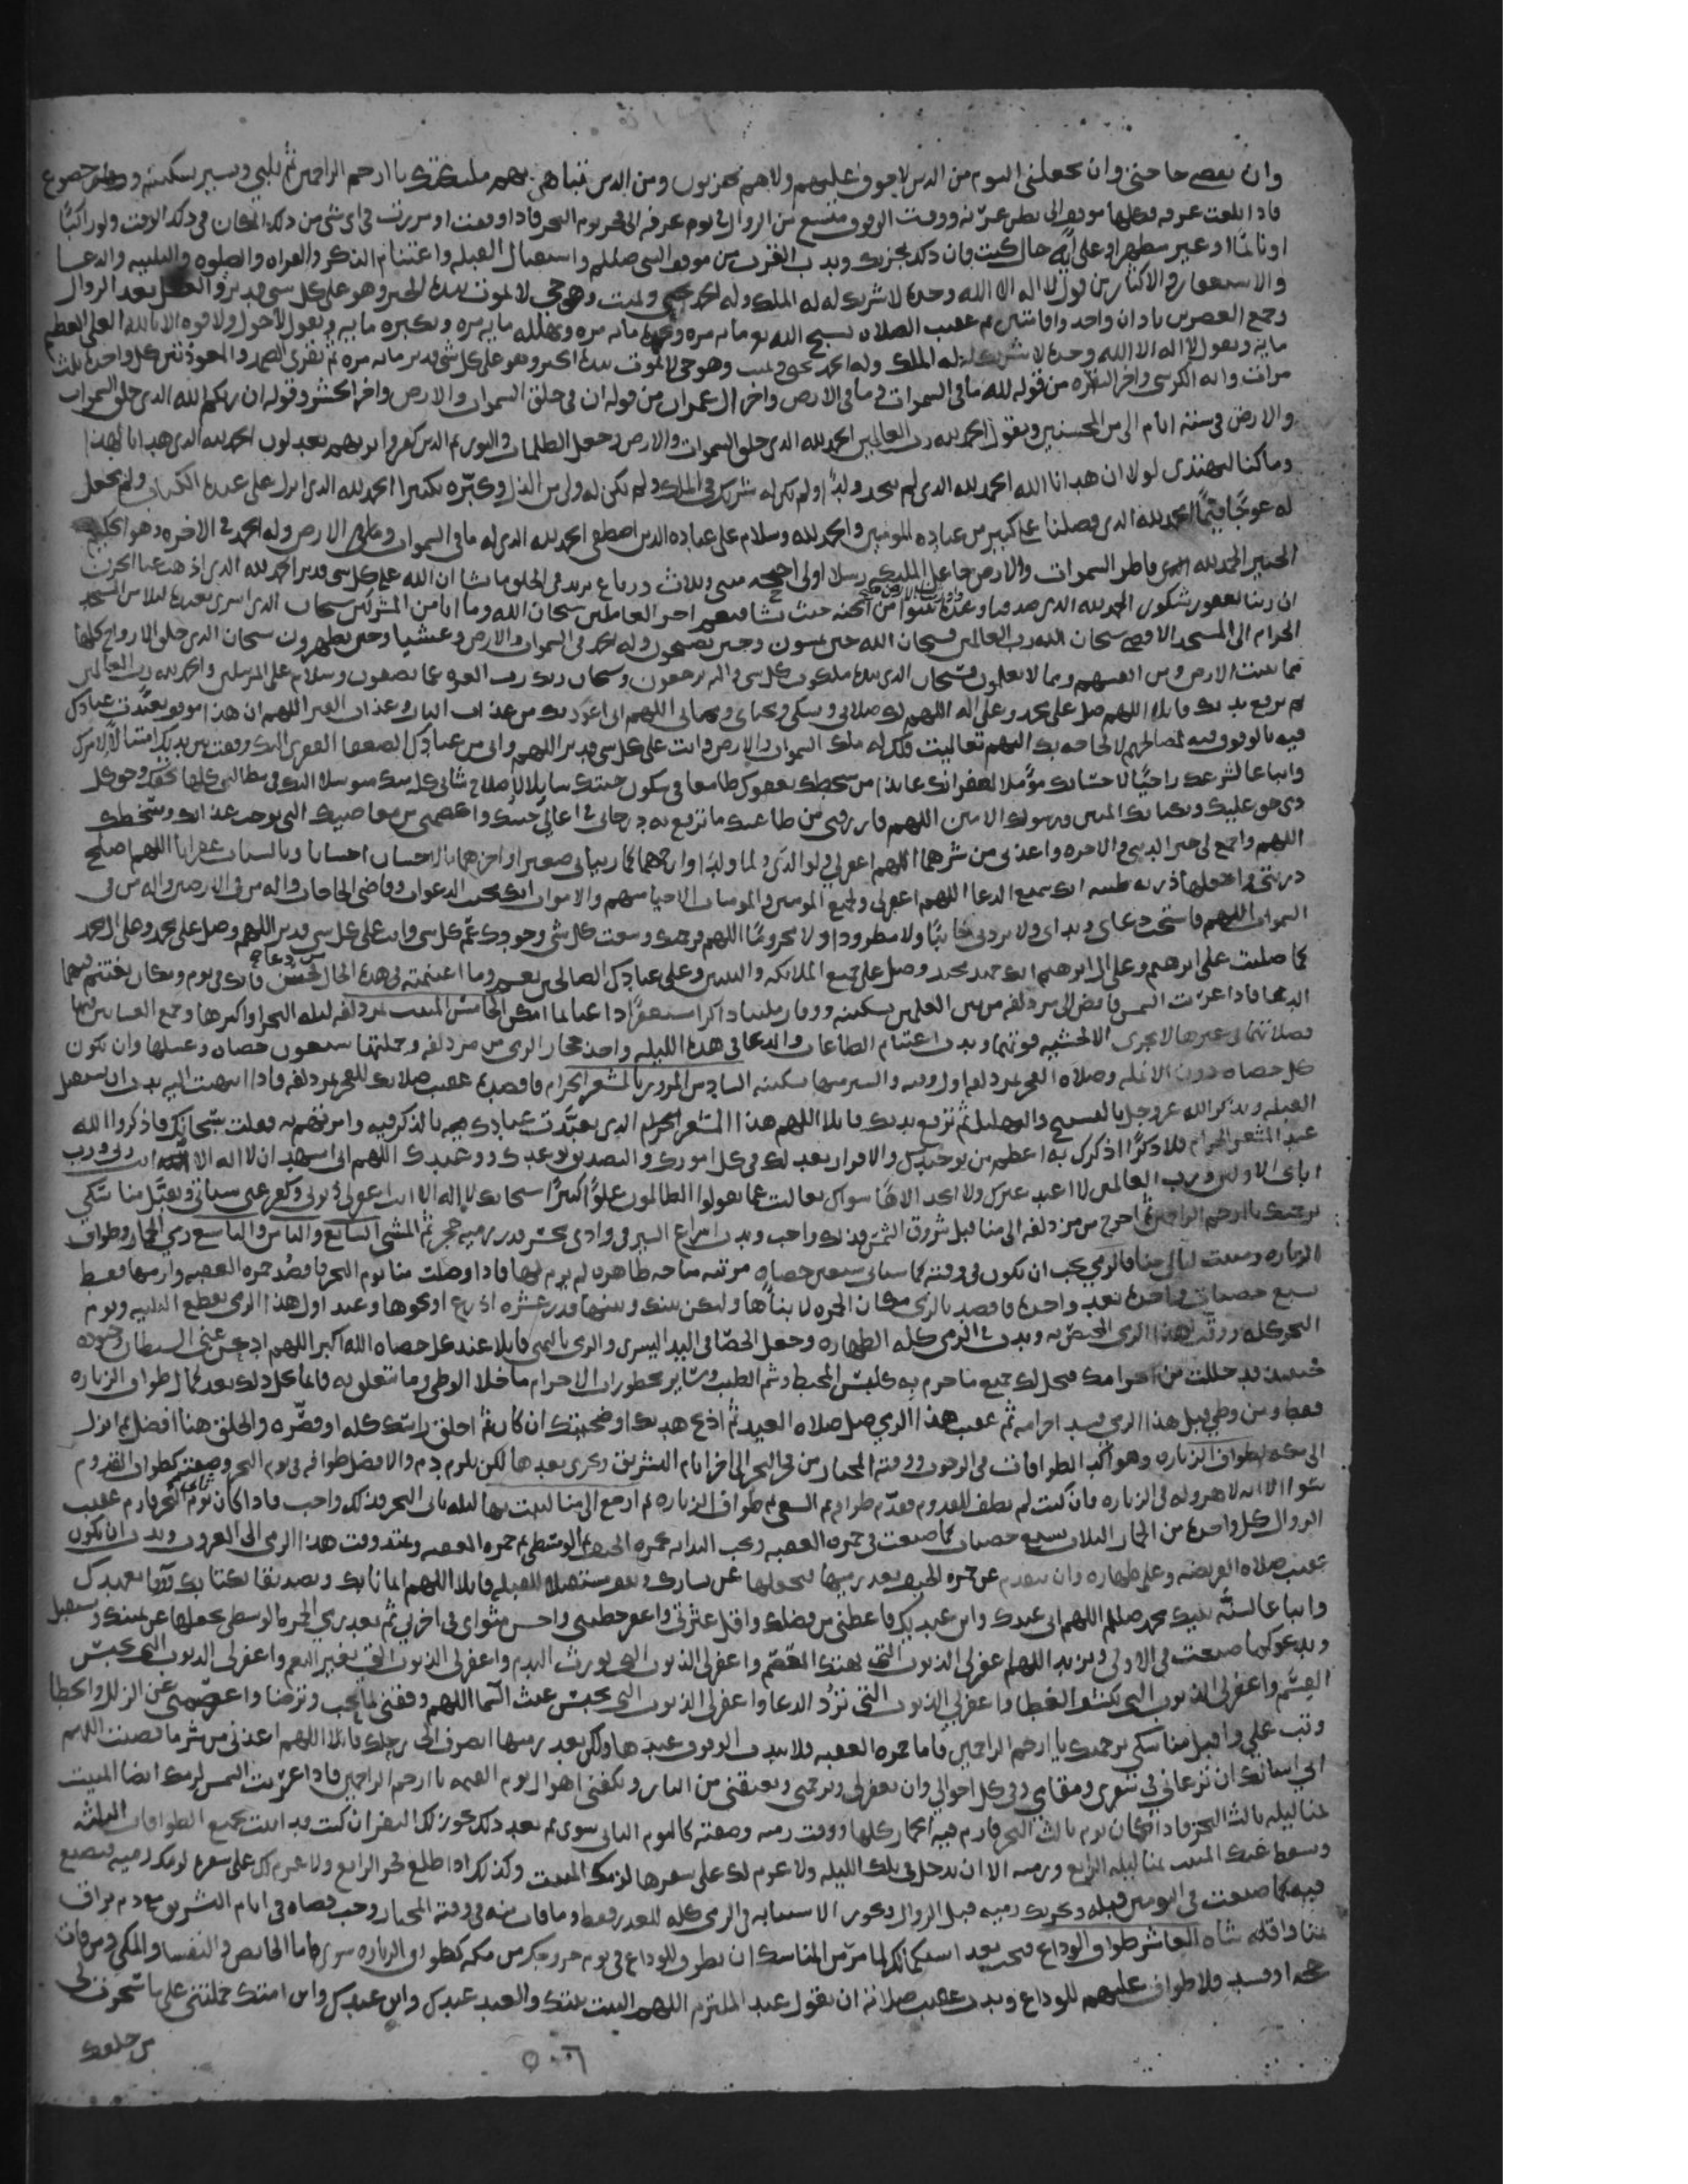 وان تقضي حاجتي وان تجعلني اليوم من الذين لا خوف عليهم ولا هم يحزنون ومن الذين تباهي بهم ملائكتك يا ارحم الراحمين ثم تلبي وتسير بسكينة
فاذا بلغت عرفة فكلها موقف الا بطن عرنة ووقت الوقوف متسع من الزوال في يوم عرفة الى فجر يوم النحر فاذا وقفت او مررت في اي شي من ذلك المكان في ذلك الوقت ولو راكبًا
او نائمًا او غير متطهر او على اي حال كنت فان ذلك يجزيك وندب القرب من موقف النبي صللم واستقبال القبلة واغتنام الذكر والقراه والصلوه والتلبيه والدعا
والاستغفار والاكثار من قول لا اله الا الله وحده لا شريك له له الملك وله الحمد يحيي ويميت وهو حي لا يموت بيده الخير وهو على كل شي قدير و بعد الزوال
وجمع العصرين باذان واحد واقامتين ثم عقيب الصلاه تسبح الله مايه مره وتحمده مايه مره وتهلله مايه مره وتكبره مايه وتقول لا حول ولا قوه الا بالله العلي العظيم
مايه وتقول لا اله الا الله وحده لا شريك له له الملك وله الحمد يحيي ويميت وهو حي لا يموت بيده الخير وهو على كل شي قدير مايه مره ثم تقرى الصمد والمعوذتين كل واحده ثلث
مرات وايه الكرسي واخر البقره من قوله لله ما في السموات وما في الارض واخر ال عمران من قوله ان في خلق السموات والارض واخر الحشر وقوله ان ربكم الله الذي خلق السموات
والارض في سته ايام الى من المحسنين وتقول الحمد لله رب العالمين الحمد لله الذي خلق السموات والارض وجعل الظلمات والنور ثم الذين كفروا بربهم يعدلون الحمد لله الذي هدانا لهذا
وما كنا لنهتدي لولا ان هدانا الله الحمد لله الذي لم يتخذ ولدًا ولم يكن له شريك في الملك ولم يكن له ولي من الذل وكبره تكبيرا الحمد لله الذي انزل على عبده الكتاب ولم يجعل
له عوجًا قيمًا الحمد لله الذي فضلنا على كثير من عباده المومنين والحمد لله وسلام على عباده الذين اصطفى الحمد لله الذي له ما في السموات وما في الارض وله الحمد في الاخره وهو الحكيم
الخبير الحمد لله فاطر السموات والارض جاعل الملئكه رسلا اولي اجنحه مثنى وثلاث ورباع يزيد في الخلق ما يشا ان الله على كل شي قدير الحمد لله الذي اذهب عنا الحزن
ان ربنا لغفور شكور الحمد لله الذي صدقنا وعده واورثنا الارض نتبوا من الجنه حيث نشا فنعم اجر العاملين سبحان الله وما انا من المشركين سبحان الذي اسرى بعبده ليلا من المسجد
الحرام الى المسجد الاقصى سبحان الله رب العالمين فسبحان الله حين تمسون وحين تصبحون وله الحمد في السموات والارض وعشيا وحين تظهرون سبحان الذي خلق الازواج كلها
مما تنبت الارض ومن انفسهم ومما لا يعلمون فسبحان الذي بيده ملكوت كل شي واليه ترجعون وسبحان ربك رب العزه عما يصفون وسلام على المرسلين والحمد لله رب العالمين
ثم ترفع يديك قايلا اللهم صل على محمد وعلى اله اللهم لك صلاتي ونسكي ومحياي ومماتي اللهم اني اعوذ بك من عذاب النار وعذاب القبر اللهم ان هذا موقف تعبدت عبادك
فيه بالوقوف فيه لمصالحهم لا لحاجه بك اليهم تعاليت فلك له ملك السموات والارض وانت على كل شي قدير اللهم واني من عبادك الضعفا الفقرا اليك وقفت بين يديك امتثالًا لامرك
واتباعا لشرعك راجيًا لاحسانك مؤملا لغفرانك عايذا من سخطك بعفوك طامعا في سكون جنتك سايلا لاصلاح شاني كله منك متوسلا اليك في مطالبي كلها بحقك وحق كل
ذي حق عليك وبكتابك المبين وبرسولك الامين اللهم فارزقني من طاعتك ما ترفع به درجاتي في اعالي جنتك واعصمني من معاصيك التي توجب عذابك وسخطك
اللهم واجمع لي خير الدنيا والاخره واعذني من شرهما اللهم اغفر لي ولوالدي ولما ولدا وارحمهما كما ربياني صغيرا واجزهما بالاحسان احسانا وبالسيات غفرانا اللهم اصلح
ذريتي واجعلها ذريه طيبه انك سميع الدعا اللهم اغفر لي ولجميع المومنين والمومنات الاحيا منهم والاموات انك مجيب الدعوات وقاضي الحاجات واله من في الارض واله من في
السموات اللهم فاستجب دعاي ونداي ولا تردني خايبًا ولا مطرودا ولا محرومًا اللهم فرحمتك وسعت كل شي وجودك عم كل شي وانت على كل شي قدير اللهم وصل على محمد وعلى ال محمد
كما صليت على ابرهيم وعلى ال ابرهيم انك حميد مجيد وصل على جميع الملائكه والنبيين وعلى عبادك الصالحين وما اغتنمته في هذه الحال فحسن فانك في يوم ومكان يغتنم فيهما
الدعا فاذا غربت الشمس فافض الى مزدلفه من بين العلمين بسكينه ووقار ملبيا ذاكرا مستغفرًا داعيا لما امكن الخامس المبيت بمزدلفه ليله النحر او اكثرها وجمع العشايين فيها
فصلاتهما في غيرها لا يجزي الا لخشيه فوتهما وندب اغتنام الطاعات والدعا في هذه الليله واخذ حجار الرمي من مزدلفه وجملتها سبعون حصاه وغسلها وان تكون
كل حصاه دون الانمله وصلاه الفجر بمزدلفه اول وقته والسير منها بسكينه السادس المرور بالمشعر الحرام فاقصده عقيب صلاتك للفجر بمزدلفه فاذا انتهيت اليه ندب ان تستقبل
القبله وتذكر الله عز وجل بالتسبيح والتهليل ثم ترفع يديك قايلا اللهم هذا المشعر الحرام الذي تعبدت عبادك فيه بالذكر فيه وامرتهم به فقلت سبحانك فاذكروا الله
عند المشعر الحرام فلا ذكرًا اذكرك به اعظم من توحيدك والاقرار بعدلك في كل امورك والتصديق بوعدك ووعيدك اللهم اني اشهد ان لا اله الا الله انت ربي ورب
اباي الاولين ورب العالمين لا اعبد غيرك ولا اتخذ الاهًا سواك تعاليت عما يقولوا الظالمون علوًا كبيرًا سبحانك لا اله الا انت اغفر لي ذنوبي وكفر عني سياتي وتقبل مناسكي
برحمتك يا ارحم الراحمين ثم اخرج من مزدلفه الى منا قبل شروق الشمس فذلك واجب وندب اسراع السير في وادي محسر قدر رميه حجر ثم المشي السابع والثامن والتاسع رمي الجمار وطواف
الزياره ومبيت ليالي منا فالرمي يجب ان يكون في وقته كما سياتي بسبعين حصاه مرتبه مباحه طاهره لم يرم بها فاذا وصلت منا يوم النحر فاقصد جمره العقبه وارمها فقط
بسبع حصيات واحده بعد واحده فاقصد بالرمي مكان الجمره لا بناها وليكن بينك وبينها قدر عشره اذرع او نحوها وعند اول هذا الرمي يقطع التلبيه ويوم
النحر كله وقت لهذا الرمي المختص به وندب في الرمي كله الطهاره وجعل الحصا في اليد اليسرى والرمي باليمنى قايلا عند كل حصاه الله اكبر اللهم ادحر عني الشيطان وجنوده
فحينيذ قد حللت من احرامك فيحل لك جميع ما حرم به كلبس المخيط وشم الطيب وساير محظورات الاحرام ما خلا الوطي وما يتعلق به فانما يحل ذلك بعد كمال طواف الزياره
فقط ومن وطي قبل هذا الرمي فسد احرامه ثم عقيب هذا الرمي صل صلاه العيد ثم اذبح هديك او ضحيتك ان كان ثم احلق راسك كله او قصره والحلق هنا افضل ثم انزل
الى مكه لطواف الزياره وهو اكد الطوافات في الوجوب ووقته المختار من فجر النحر الى اخر ايام التشريق ويجزي بعدها لكن يلزم دم والافضل طوافه في يوم النحر وصفته كطواف القدوم
سوا الا انه لا هروله في الزياره فان كنت لم تطف للقدوم فقدم طوافه ثم السعي ثم طواف الزياره ثم ارجع الى منا لتبيت بها ليله ثاني النحر فذلك واجب فاذا كان يوم ثاني النحر فارم عقيب
الزوال كل واحده من الجمار الثلاث بسبع حصيات كما صنعت في جمره العقبه ويجب البدايه بجمره الخيف ثم الوسطى ثم جمره العقبه ويمتد وقت هذا الرمي الى الغروب وندب ان يكون
عقيب صلاه الفريضه وعلى طهاره وان تتقدم عن جمره الخيف بعد رميها فتجعلها عن يسارك وتقف مستقبلا للقبله قايلا اللهم ايمانا بك وتصديقا بكتابك ووفا بعهدك
واتباعا لسنه نبيك محمد صللم اللهم اني عبدك وابن عبديك فاعطني من فضلك واقل عثرتي واغفر خطيتي واحسن مثواي في اخرتي ثم بعد رمي الجمره الوسطى تجعلها عن يمينك وتستقبل
وتدعو كما صنعت في الاولى وتزيد اللهم اغفر لي الذنوب التي تهتك العصم واغفر لي الذنوب التي تورث الندم واغفر لي الذنوب التي تغير النعم واغفر لي الذنوب التي تحبس
القسم واغفر لي الذنوب التي تكشف الغطا واغفر لي الذنوب التي ترد الدعا واغفر لي الذنوب التي تحبس غيث السما اللهم وفقني لما تحب وترضا واعصمني عن الزلل والخطا
وتب علي واقبل مناسكي برحمتك يا ارحم الراحمين فاما جمره العقبه فلا يندب الوقوف عندها ولكن بعد رميها انصرف الى رحلك قايلا اللهم اعذني من شر ما قضيت اللهم
اني اسالك ان ترعاني في سفري ومقامي وفي كل احوالي وان تغفر لي وترحمني وتعتقني من النار وتكفني اهوال يوم القيمه يا ارحم الراحمين فاذا غربت الشمس لزمك ايضا المبيت
بمنا ليله ثالث النحر فاذا كان يوم ثالث النحر فارم فيه الجمار كلها ووقت رميه وصفته كاليوم الثاني سوى ثم بعد ذلك يجوز لك النفر ان كنت قد اتيت بجميع الطوافات الثلثه
ويسقط عنك المبيت بمنا ليله الرابع ورميه الا ان تدخل في تلك الليله ولا عزم لك على سفرها لزمك المبيت وكذلك اذا طلع فجر الرابع ولا عزم لك على سفره لزمك رميه فتصنع
فيه كما صنعت في اليومين قبله ويجزيك رميه قبل الزوال ويجوز الاستنابه في الرمي كله للعذر فقط وما فات منه في وقته المختار وجب قضاه في ايام التشريق مع دم يراق
بمنا واقله شاه العاشر طواف الوداع فيجب بعد استكمالك لما مر من المناسك ان تطوف للوداع في يوم خروجك من مكه كطواف الزياره سوى فاما الحايض والنفسا والمكي ومن فات
حجه او فسد فلا طواف عليهم للوداع وندب عقيب صلاته ان تقول عند الملتزم اللهم البيت بيتك والعبد عبدك وابن عبدك وابن امتك حملتني على ما سخرت لي
من خلقك
٥٠٦